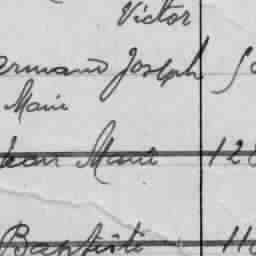 Victor
Joseph
Marie
Jean Marie 12
Baptiste 11